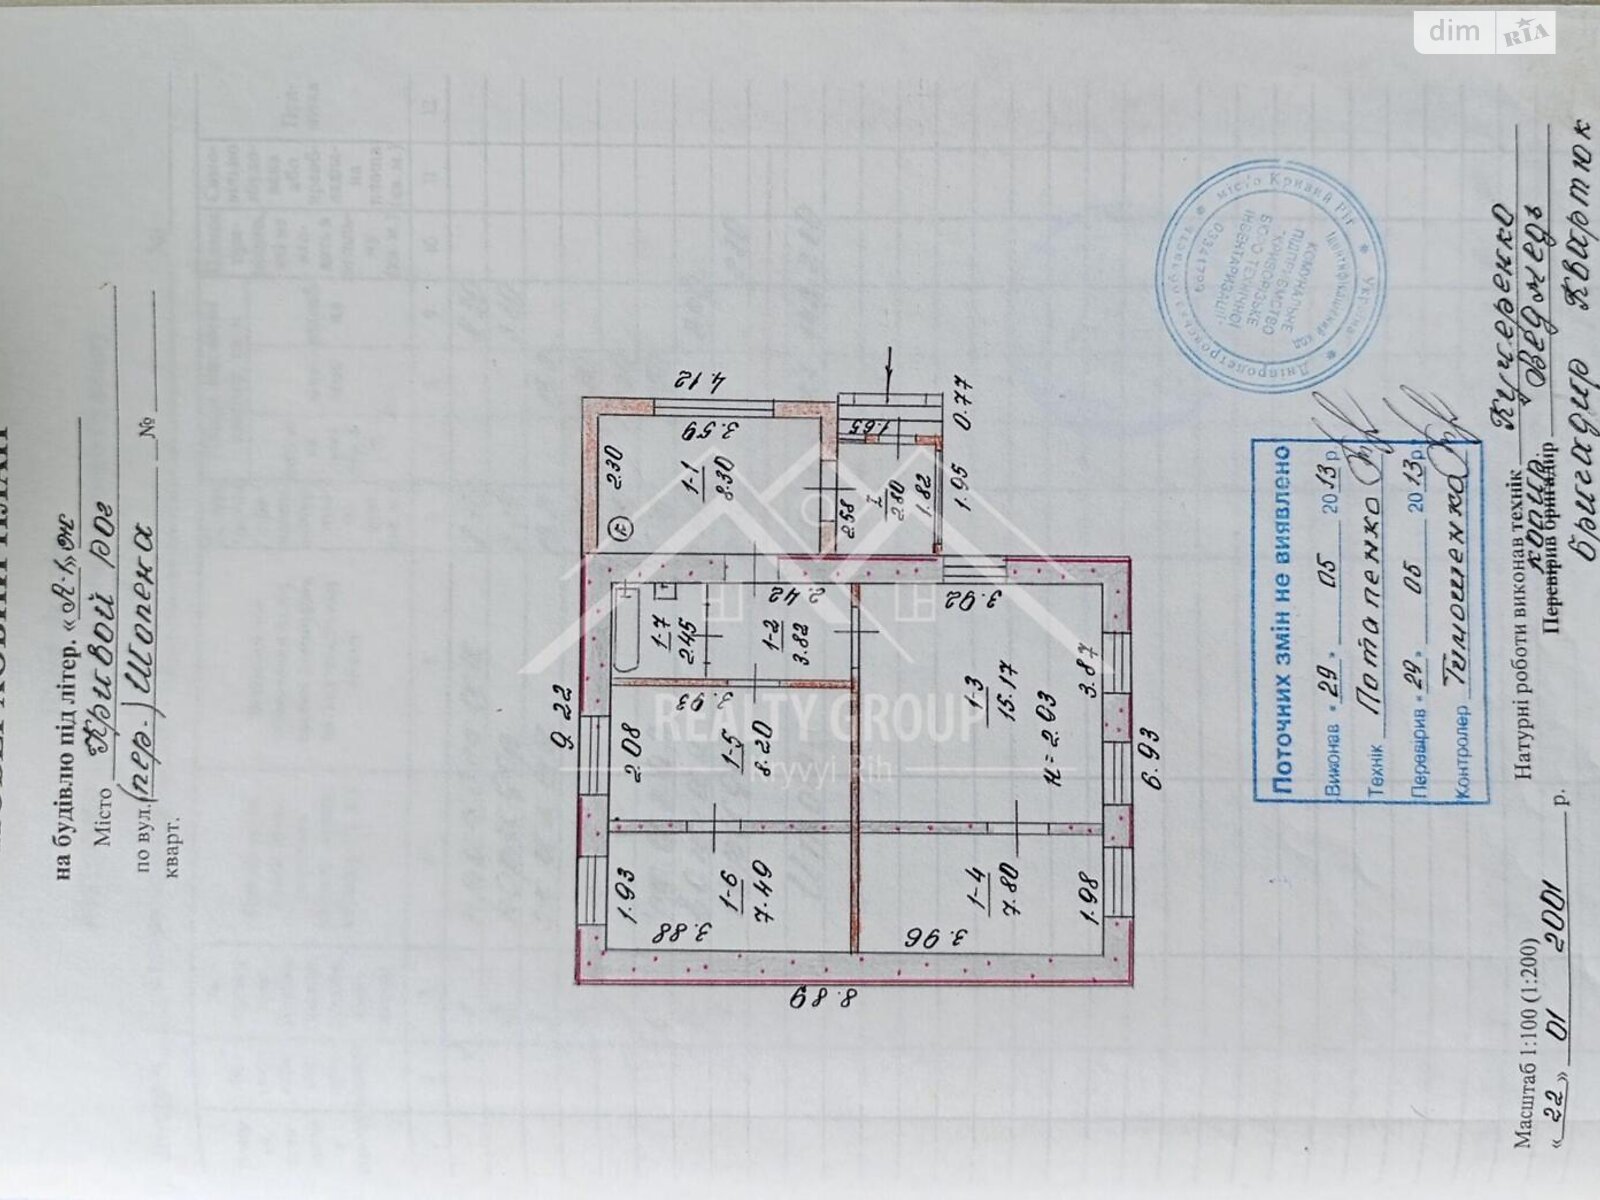 на будівлю під літер. «А-1»ж
Місто Кривой рог
по вул. (пер.) Шопена №
кварт.
9.22
2.30
К
1-1
8.30
3.59
4.12
1-7
2.45
1-2
3.82
2.42
2.58
I
2.80
1.82
1.65
1.95
0.77
2.08
3.93
1-5
8.20
1.93
1-6
7.49
3.88
3.92
1-3
15.17
н=2.93
3.87
1-4
7.80
1.98
3.96
6.93
8.89
REALTY GROUP
Kryvyi Rih
Поточних змін не виявлено
Виконав «29» 05 2013 р.
Технік Потапенко
Перевірив «29» 05 2013 р.
Контролер Тимошенко
Україна
Дніпропетровська область
місто Кривий Ріг
Ідентифікаційний код
03341794
КОМУНАЛЬНЕ
ПІДПРИЄМСТВО
"КРИВОРІЗЬКЕ
БЮРО ТЕХНІЧНОЇ
ІНВЕНТАРИЗАЦІЇ"
Масштаб 1:100 (1:200)
«22» 01 2001 р.
Натурні роботи виконав технік Кушеренко
копир. Ведмедь
Перевірив бригадир
бригадир Квартюк
dim RIA